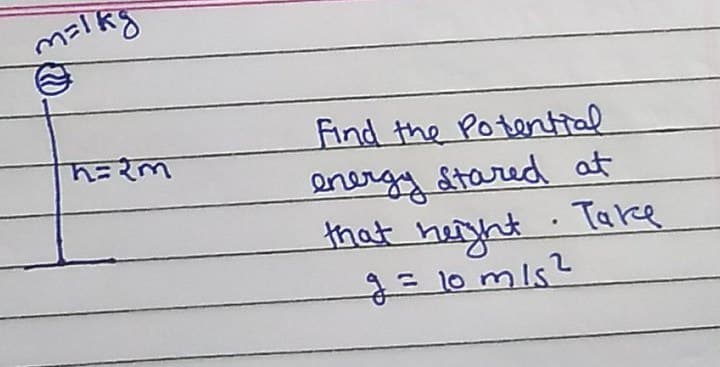 m=1kg
h=2m
Find the Potential
energy stared at
that height . Take
g = 10 m/s²